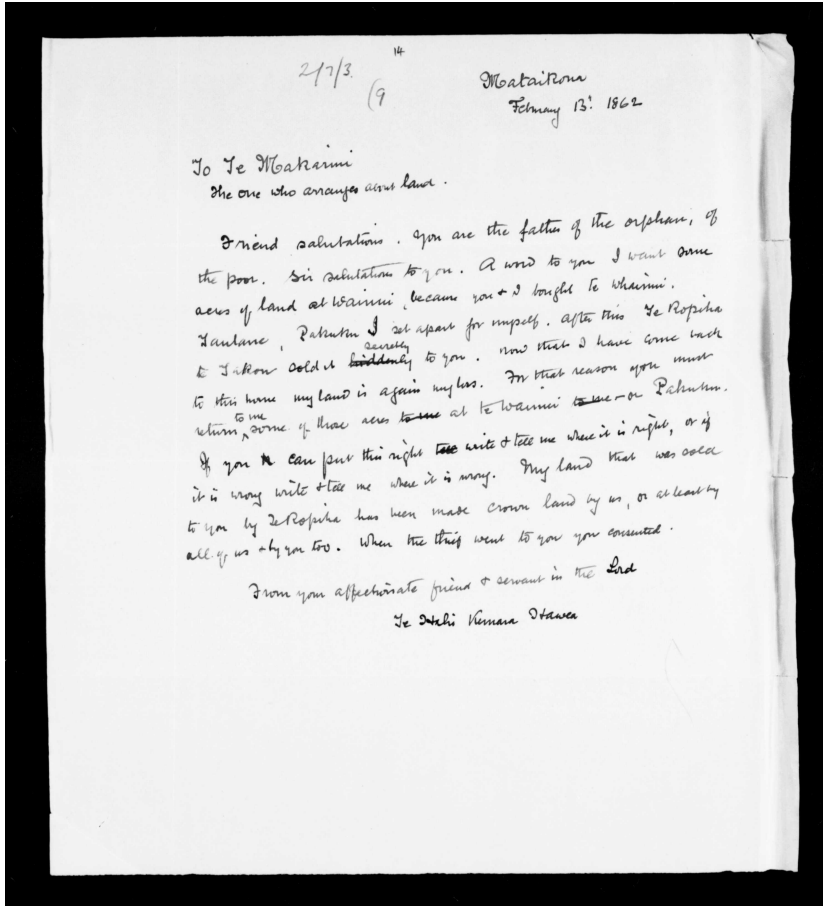 14
2/7/3.
(9
Mataikona
February 13: 1862
To Te Makarini
The one who arranges about land.
Friend salutations. You are the father of the orphan, of
the poor. Sir salutations to you. A word to you I want some
acres of land at Wainui, because you & I bought te Whainui.
Pakuku I set apart for myself. After this Te Ropiha
secretly
sold it suddenly to you. Now that I have come back
to this home my land is again my loss. For that reason you must
to me
return some of those acres to me at te Wainui to me or Pakuku.
If you can put this right tell write & tell me where it is right, or if
it is wrong write & tell me where it is wrong. My land that was sold
to you by Te Ropiha has been made crown land by us, or at least by
all of us & by you too. When the thief went to you you consented.
From your affectionate friend & servant in the Lord
Te Kemara Hawea